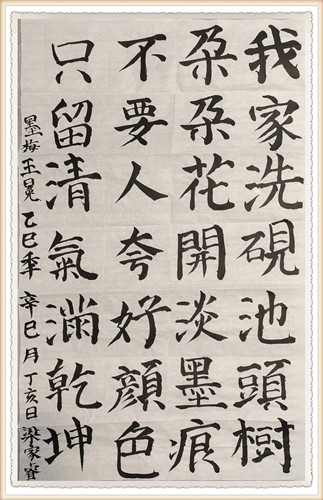 我家洗硯池頭樹
朶朶花開淡墨痕
不要人夸好顔色
只留清氣滿乾坤
墨梅王冕 乙巳年 辛巳月 丁亥日 梁家